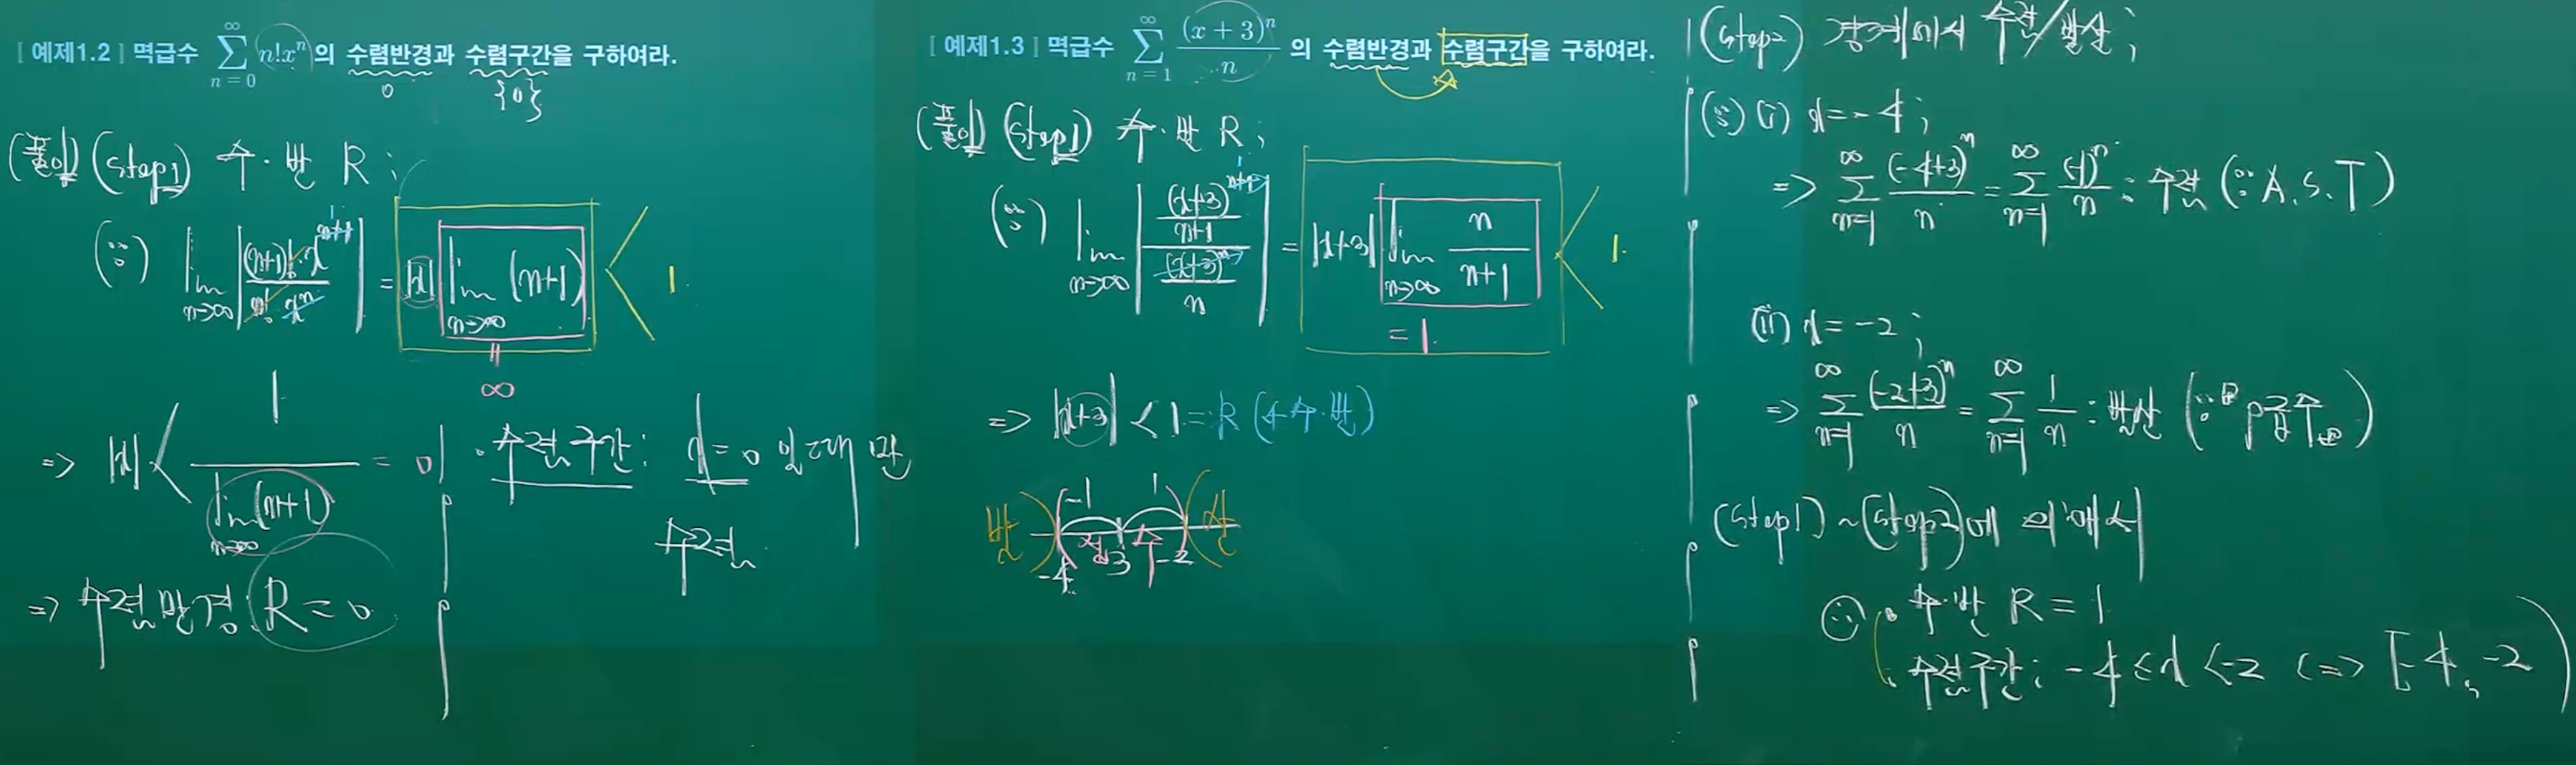 [ 예제1.2 ] 멱급수 \sum_{n=0}^{\infty} n!x^n 의 수렴반경과 수렴구간을 구하여라.
0 {0}
(풀이) (step1) 수·반 R ;
(∵) \lim_{n→∞} |\frac{(n+1)!·x^{n+1}}{n!·x^n}| = |x| \lim_{n→∞} (n+1) < 1.
= ∞
⇒ |x| < \frac{1}{\lim_{n→∞}(n+1)} = 0
⇒ 수렴반경 R = 0
· 수렴구간 : x = 0 일 때만
수렴
[ 예제1.3 ] 멱급수 \sum_{n=1}^{\infty} \frac{(x+3)^n}{n} 의 수렴반경과 수렴구간을 구하여라.
(풀이) (step1) 수·반 R ;
(∵) \lim_{n→∞} |\frac{\frac{(x+3)^{n+1}}{n+1}}{\frac{(x+3)^n}{n}}| = |x+3| \lim_{n→∞} \frac{n}{n+1} < 1.
= 1.
⇒ |x+3| < 1 = R (← 수·반)
발 -1 1 산
절 수
-4 -3 -2
(step2) 경계에서 수렴/발산 ;
(∵) (i) x = -4 ;
⇒ \sum_{n=1}^{\infty} \frac{(-4+3)^n}{n} = \sum_{n=1}^{\infty} \frac{(-1)^n}{n} : 수렴 (∵ A.S.T)
(ii) x = -2 ;
⇒ \sum_{n=1}^{\infty} \frac{(-2+3)^n}{n} = \sum_{n=1}^{\infty} \frac{1}{n} : 발산 (∵ p급수)
(step1) ~ (step2)에 의해서
∴ · 수·반 R = 1
· 수렴구간 : -4 ≤ x < -2 <=> [-4, -2)